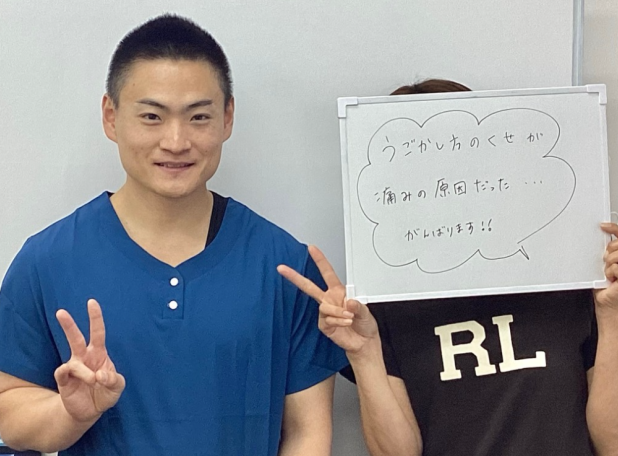 うごかし方のくせが
痛みの原因だった...
がんばります!!
RL